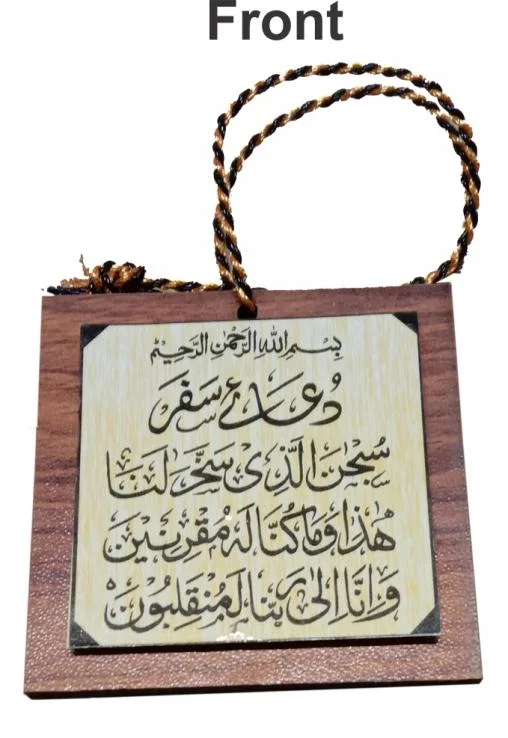 Front
بِسْمِ اللهِ الرَّحْمٰنِ الرَّحِيْمِ
دُعائے سفر
سُبْحٰنَ الَّذِىْ سَخَّرَ لَنَا
هٰذَا وَمَا كُنَّا لَهٗ مُقْرِنِيْنَ
وَاِنَّا اِلٰى رَبِّنَا لَمُنْقَلِبُوْنَ